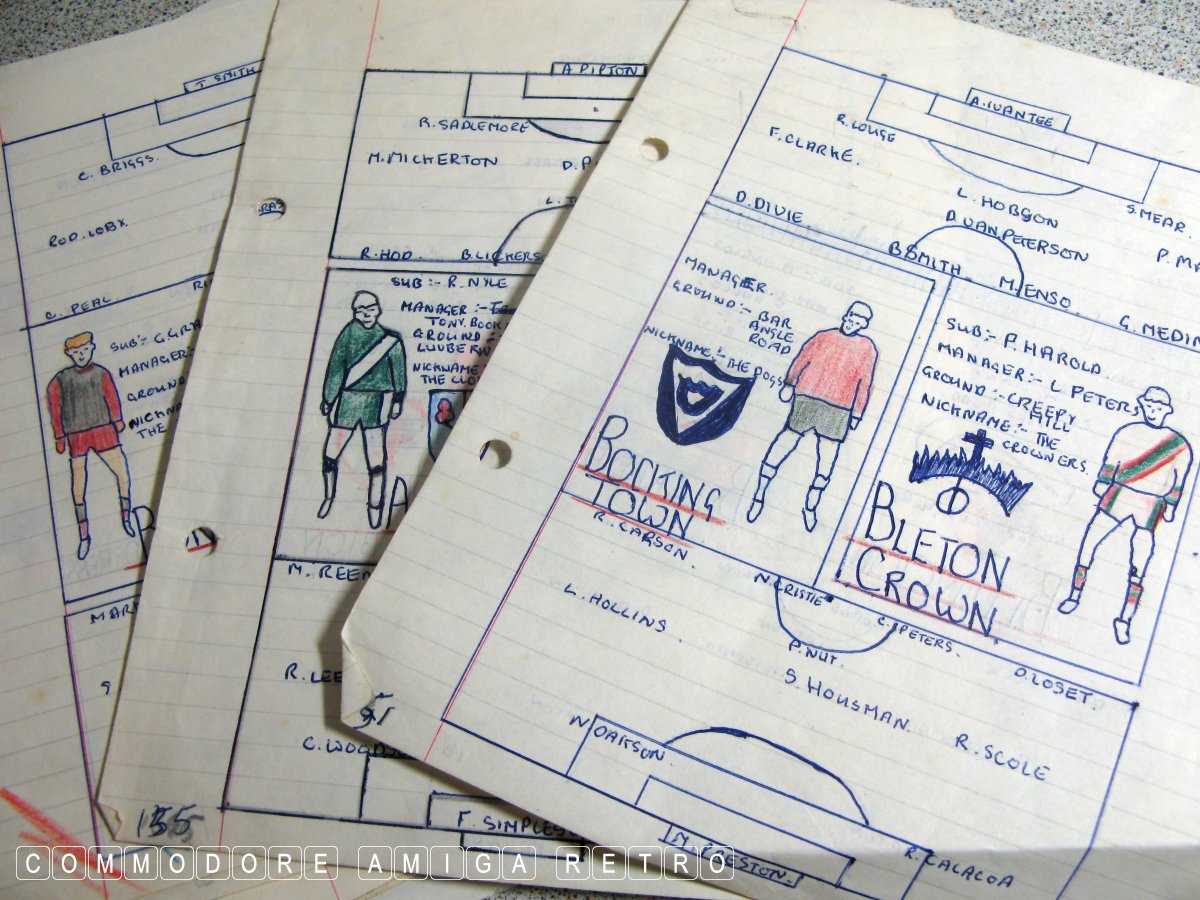 T SMITH
C. BRIGGS.
ROD. LOBX
C. PEAL.
SUB:- G.GRA
MANAGER:
GROUND
NICKNA
THE
MARK
A PIPTON
R. SADLEMORE
M. MICKERTON
D.P
L.
R. HOD.
B. LICKERS
SUB :- R. NYLE
MANAGER :-
TONY. BOOK
GROUND :
NICKNAME
THE CLO
A
M. REEN
R. LEE
C. WOODS
F. SIMPLES
155
A.IVANTEE
R. LOUGE
F. CLARKE.
L. HOBSON
S. MEAR.
D. DIVIE
D. VAN. PETERSON
P. MA
B. SMITH.
M. ENSO
G. MEDIN
MANAGER.
GROUND :- BAR
ANGLE
ROAD
NICKNAME :- THE DOGS
BOCKING
TOWN
SUB:- P. HAROLD
MANAGER :- L. PETERS
GROUND :- CREEPY
HILL
NICKNAME :- THE
CROWNERS.
BLETON
CROWN.
R. CARSON.
N. CRISTIE
C. PETERS.
D. LOSET.
L. HOLLINS.
P. NUT.
S. HOUSMAN.
R. SCOLE
N OAKSON.
M. PRESTON.
R. CALACOA
COMMODORE AMIGA RETRO